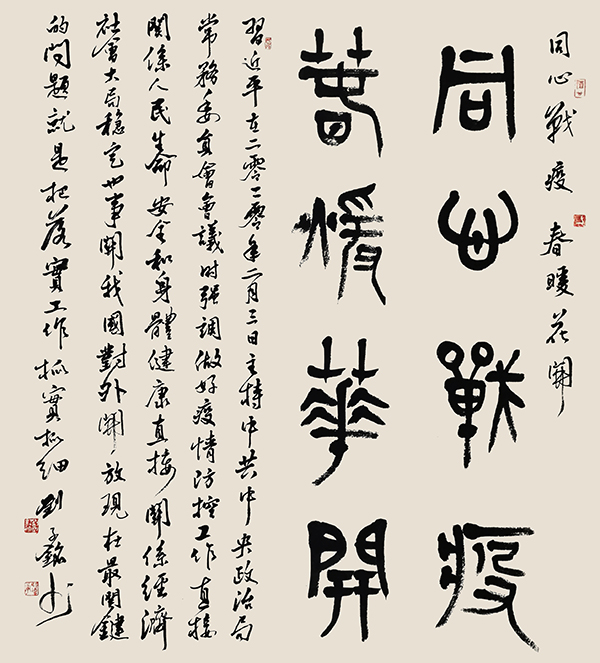 同心戰疫 春暖花開
同心戰疫
春煖華開
習近平在二零二零年二月三日主持中共中央政治局
常務委員會會議时强調做好疫情防控工作直接
關係人民生命安全和身體健康直接關係經濟
社會大局稳定也事關我國對外開放現在最關鍵
的问題就是把落實工作抓實抓细 劉子銘书